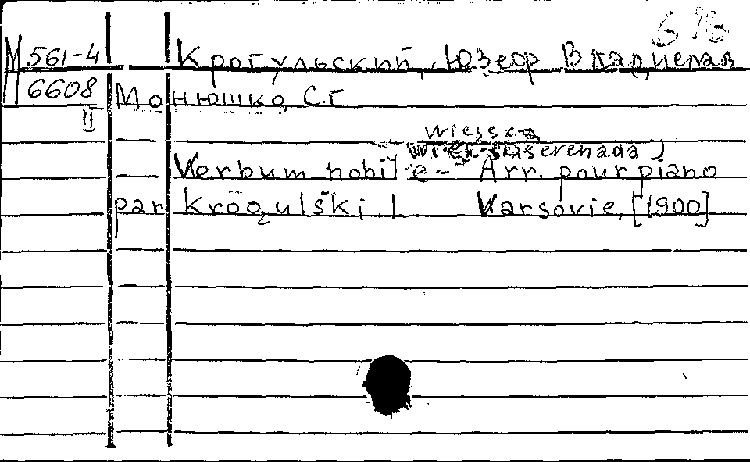 М 561-4 Крогульский, Юзеф Владислав
6608 Монюшко, С.Г
II
wiejska
serenada
Verbum nobile - Arr. pour piano
par Krogulski I Varsovie, [1900]